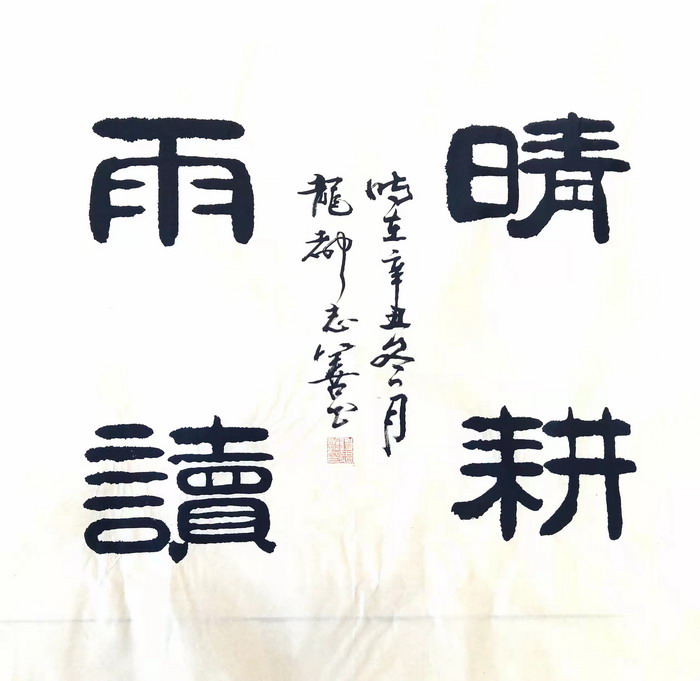 晴耕
雨讀
時在辛丑冬月
龍都志善書